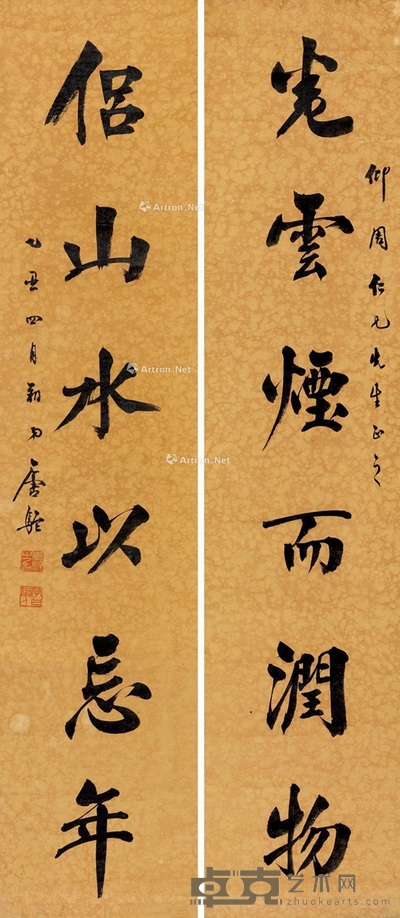 卷雲煙而潤物
仰周仁兄先生正之
侶山水以忘年
乙丑四月 唐駝
Artron.Net
Artron.Net
Artron.Net
Artron.Net
卓克艺术网
zhuokearts.com